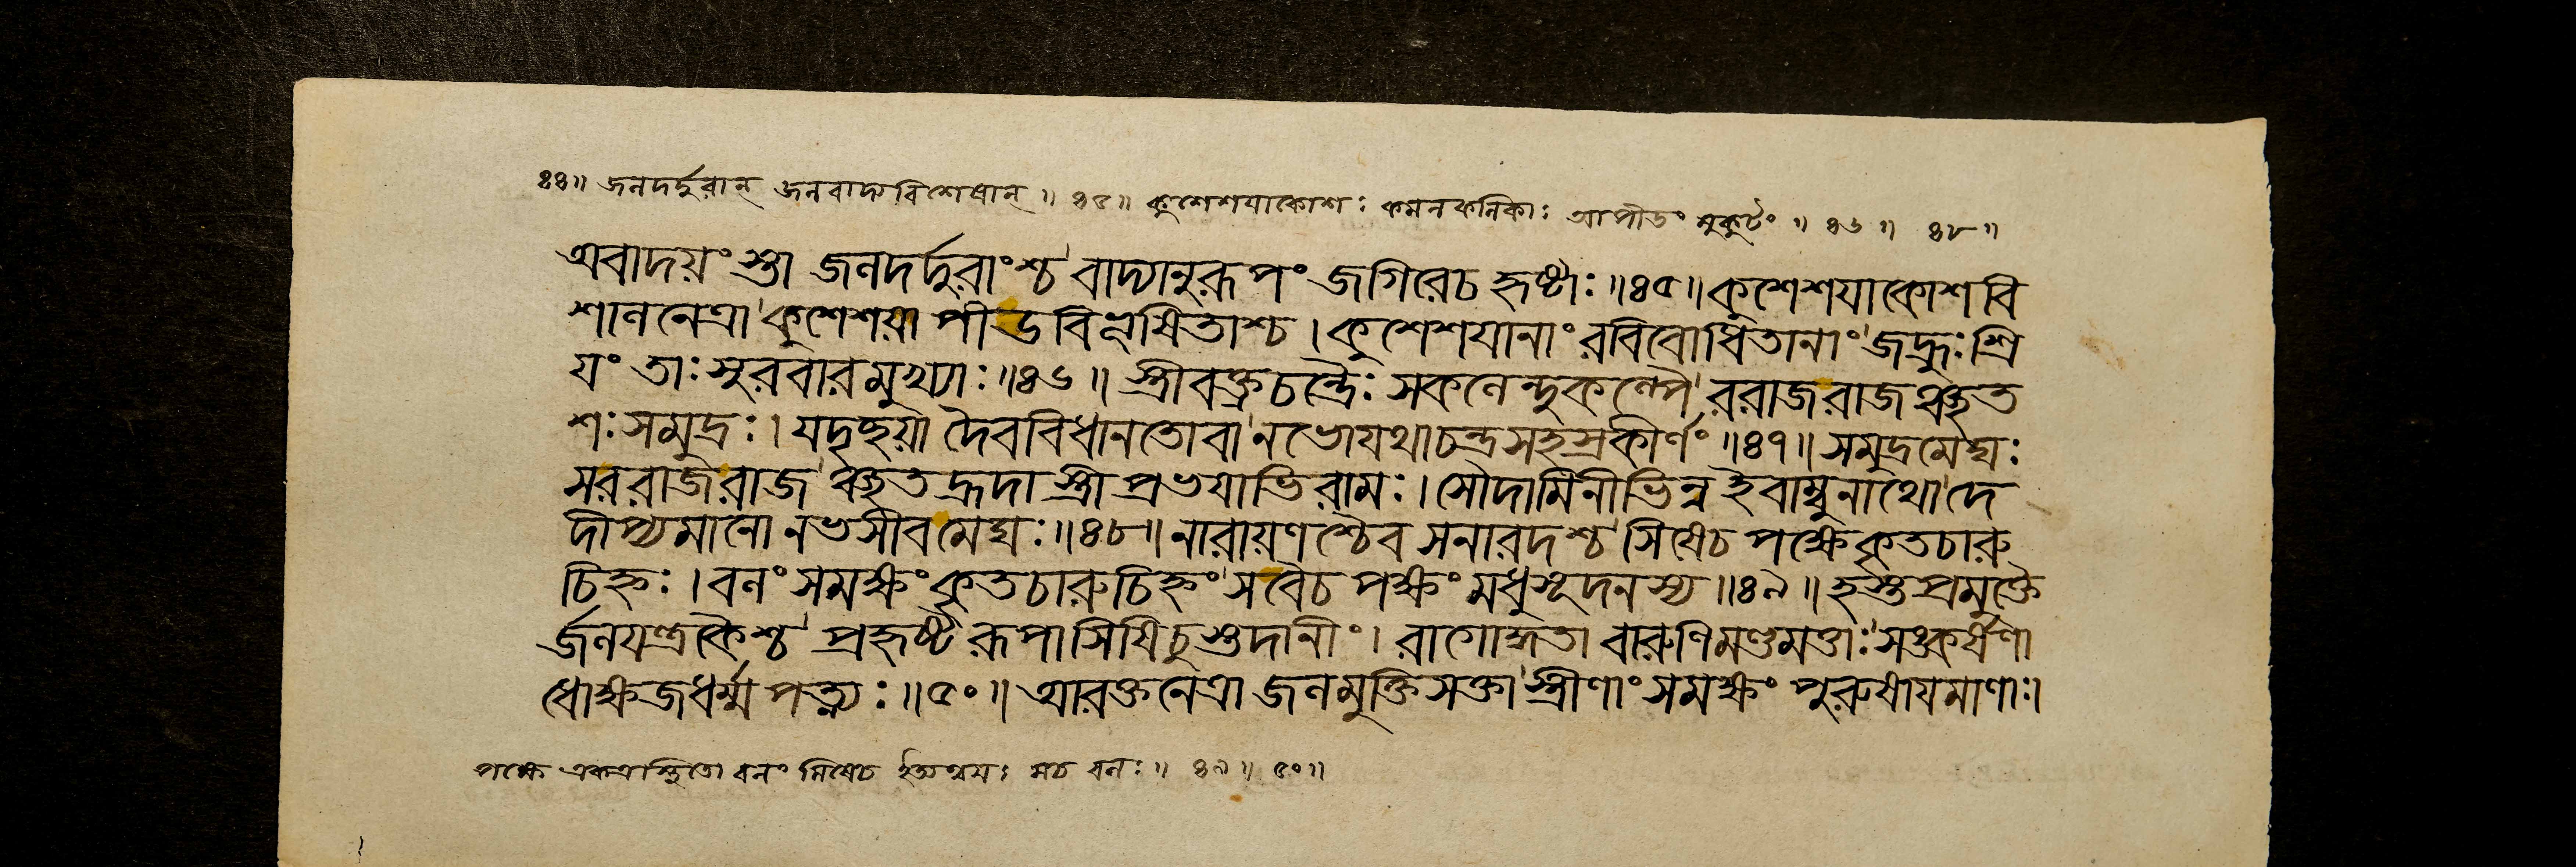 ৪৪॥ জলদর্দ্দুরান্ জলবাদ্যবিশেষান্ ॥ ৪৫॥ কুশেশয়াকোশঃ কমলকলিকাঃ আপীডং মুকুটং ॥ ৪৬ ॥ ৪৮ ॥
অবাদয়ংস্তা জলদর্দ্দুরাংশ্চ বাদ্যানুরূপং জগিরেচ হৃষ্টাঃ ॥৪৫॥ কুশেশয়াকোশবি
শালনেত্রা কুশেশয়াপীডবিভূষিতাশ্চ । কুশেশয়ানাং রবিবোধিতানাং জহ্রুঃ শ্রি
য়ং তাঃ সুরবারমুখ্যাঃ ॥৪৬॥ স্ত্রীবক্ত্রচন্দ্রৈঃ সকলেন্দুকল্পৈ ররাজরাজঞ্ছত
শঃ সমুদ্রঃ । যদৃচ্ছয়া দৈববিধানতোবা নভোযথাচন্দ্রসহস্রকীর্ণং ॥৪৭॥ সমুদ্রমেঘঃ
সররাজরাজ ঞ্ছতহ্রদাস্ত্রী প্রভয়াভিরামঃ । সৌদামিনীভিন্ন ইবাম্বুনাথো দে
দীপ্যমানো নভসীবমেঘঃ ॥৪৮॥ নারায়ণশ্চৈব সনারদশ্চ সিষেচ পক্ষেকৃতচারু
চিহ্নঃ । বলং সমক্ষং কৃতচারুচিহ্নং সবৈচ পক্ষং মধুসূদনস্য ॥৪৯॥ হস্তপ্রমুক্তৈ
র্জলযন্ত্রকৈশ্চ প্রহৃষ্টরূপা সিষিচুস্তদানীং । রাগোদ্ধতা বারুণিমণ্ডমত্তাঃ সঙ্কর্ষণা
ধোক্ষজধর্ম্মপত্ন্যঃ ॥৫০॥ আরক্তনেত্রা জলমুক্তিসক্তা স্ত্রীণাং সমক্ষং পুরুষায়মাণাঃ।
পক্ষে একত্রাস্থিতো বলং সিষেচ ইত্যন্বয়ঃ সচ বলঃ ॥ ৪৯ ॥ ৫০॥